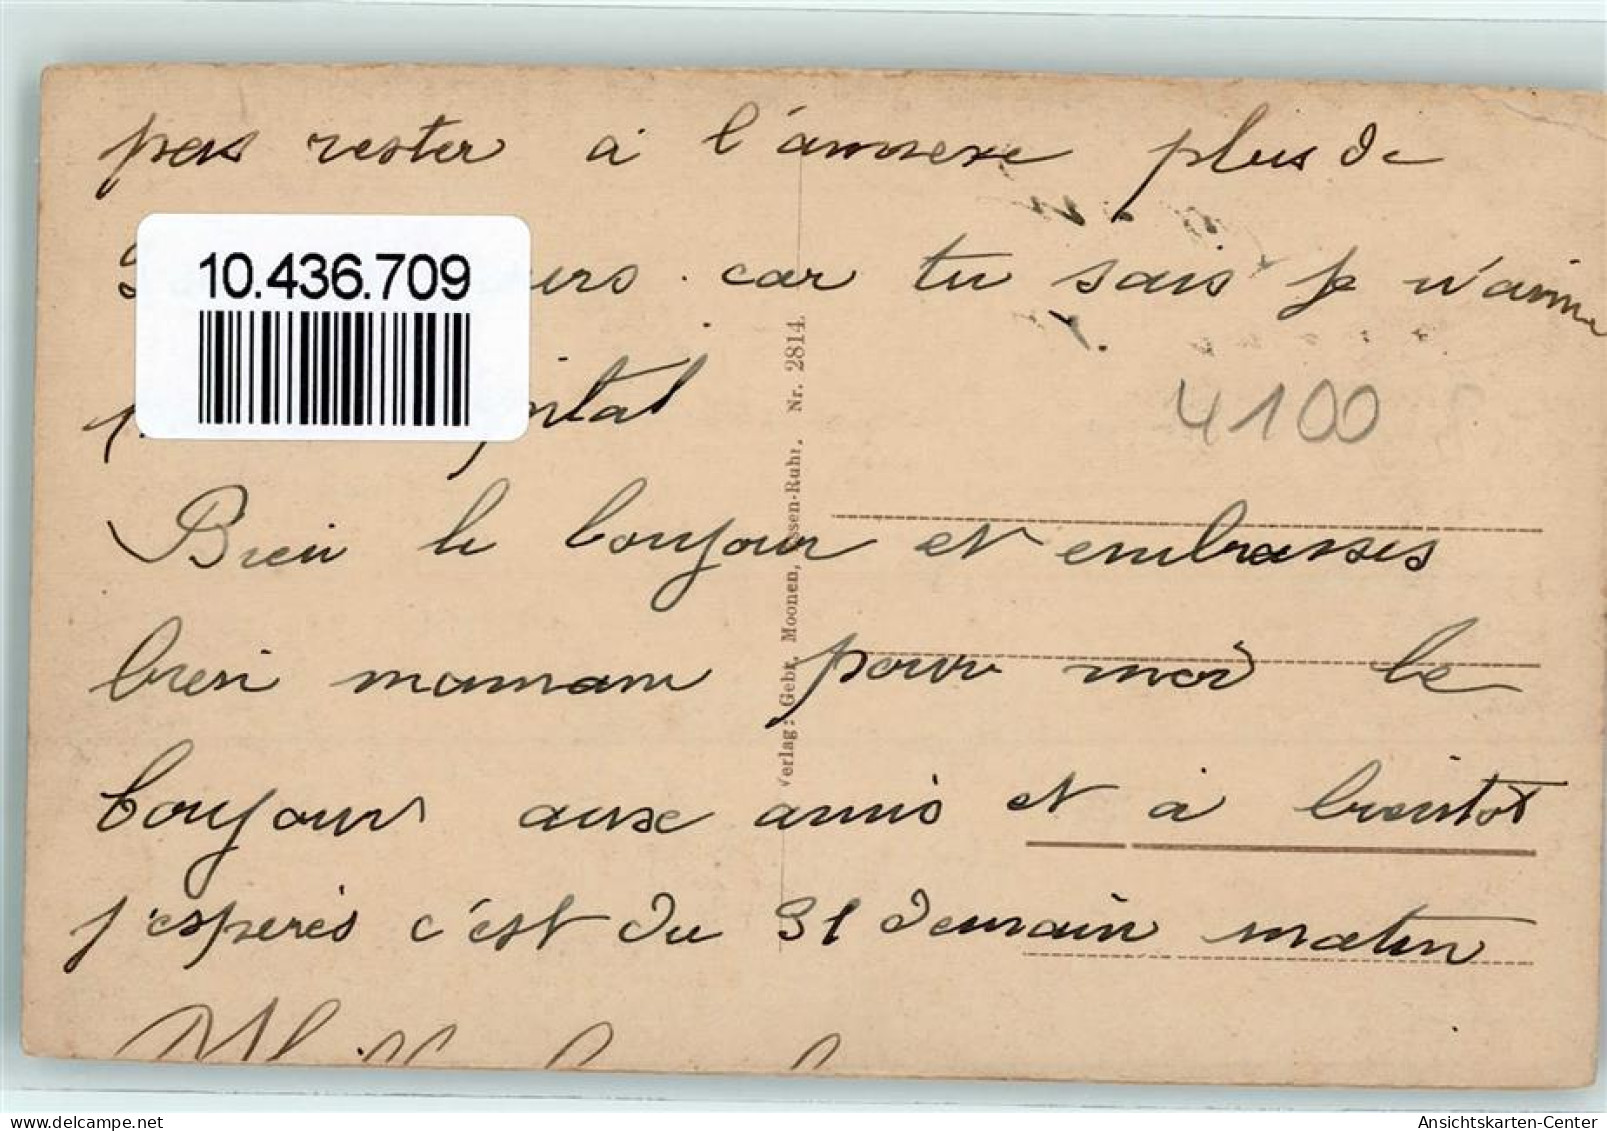 pas rester à l'annexe plus de
10.436.709
car tu sais je n'aime
4100
Bien le bonjour et embrasses
bien maman pour moi le
bonjour aux amis et à bientot
j'esperes c'est du 31 demain matin
Verlag: Gebr. Moonen, Essen-Ruhr. Nr. 2814.
Ansichtskarten-Center